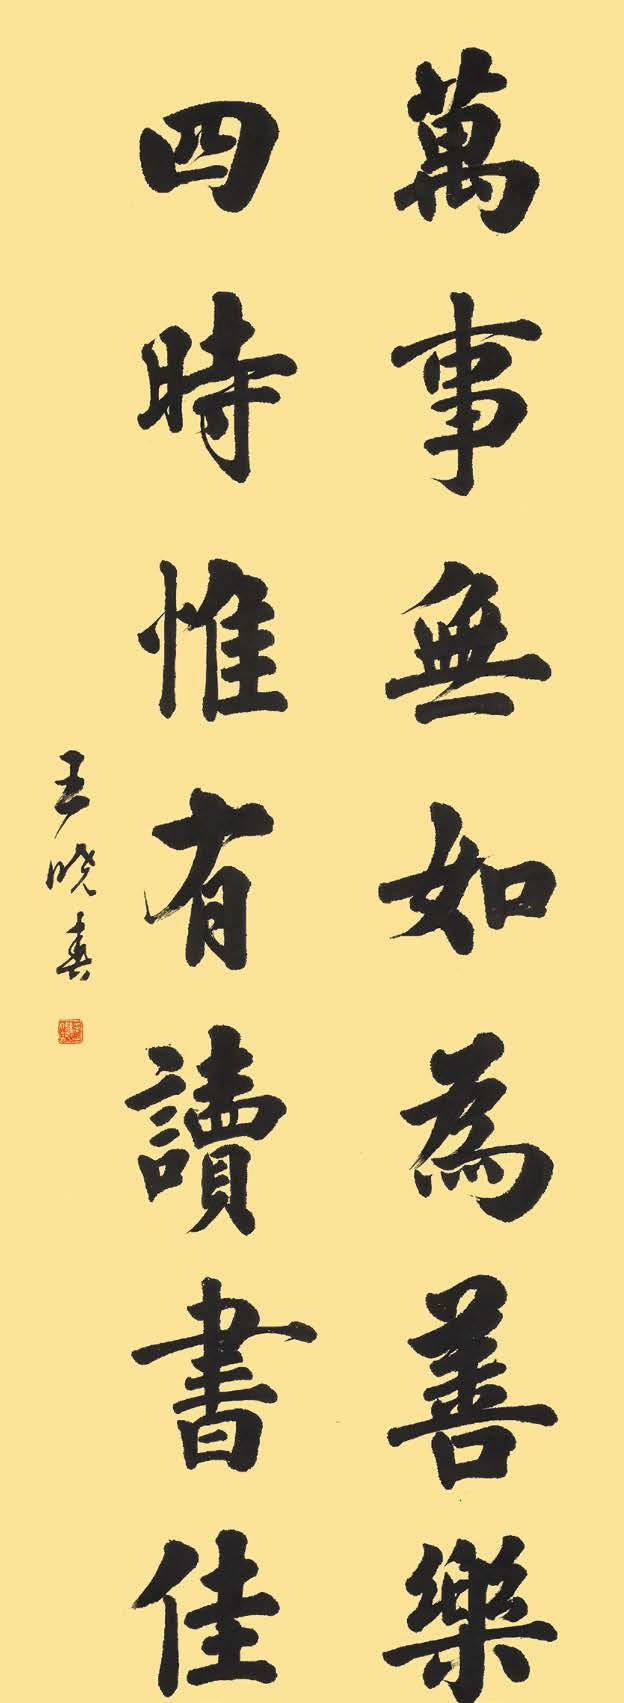 萬事無如為善樂
四時惟有讀書佳
王晓春